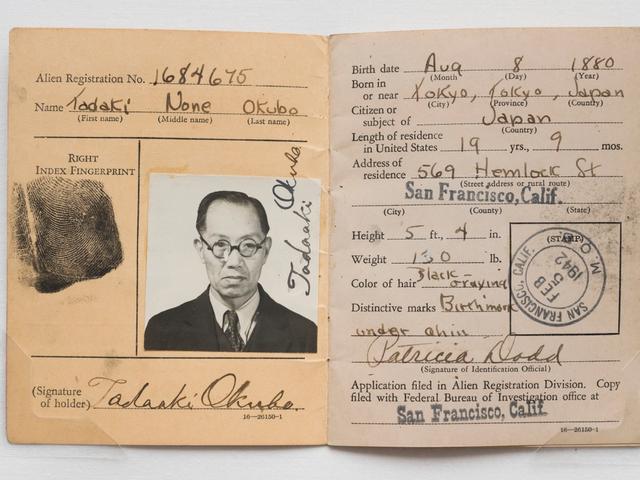 Alien Registration No. 1684675
Name Tadaki None Okubo
(First name) (Middle name) (Last name)
RIGHT
INDEX FINGERPRINT
Tadaaki Okubo
(Signature
of holder) Tadaaki Okubo
16—26150-1
Birth date Aug 8 1880
(Month) (Day) (Year)
Born in
or near Tokyo, Tokyo, Japan
(City) (Province) (Country)
Citizen or
subject of Japan
(Country)
Length of residence
in United States 19 yrs., 9 mos.
Address of
residence 569 Hemlock St
(Street address or rural route)
San Francisco, Calif.
(City) (County) (State)
Height 5 ft., 4 in.
Weight 130 lb.
Color of hair Black-graying
Distinctive marks Birthmark
under chin
(STAMP)
SAN FRANCISCO, CALIF.
FEB
5
1942
M. O. B.
Patricia Dodd
(Signature of Identification Official)
Application filed in Alien Registration Division. Copy
filed with Federal Bureau of Investigation office at
San Francisco, Calif
16—26150-1